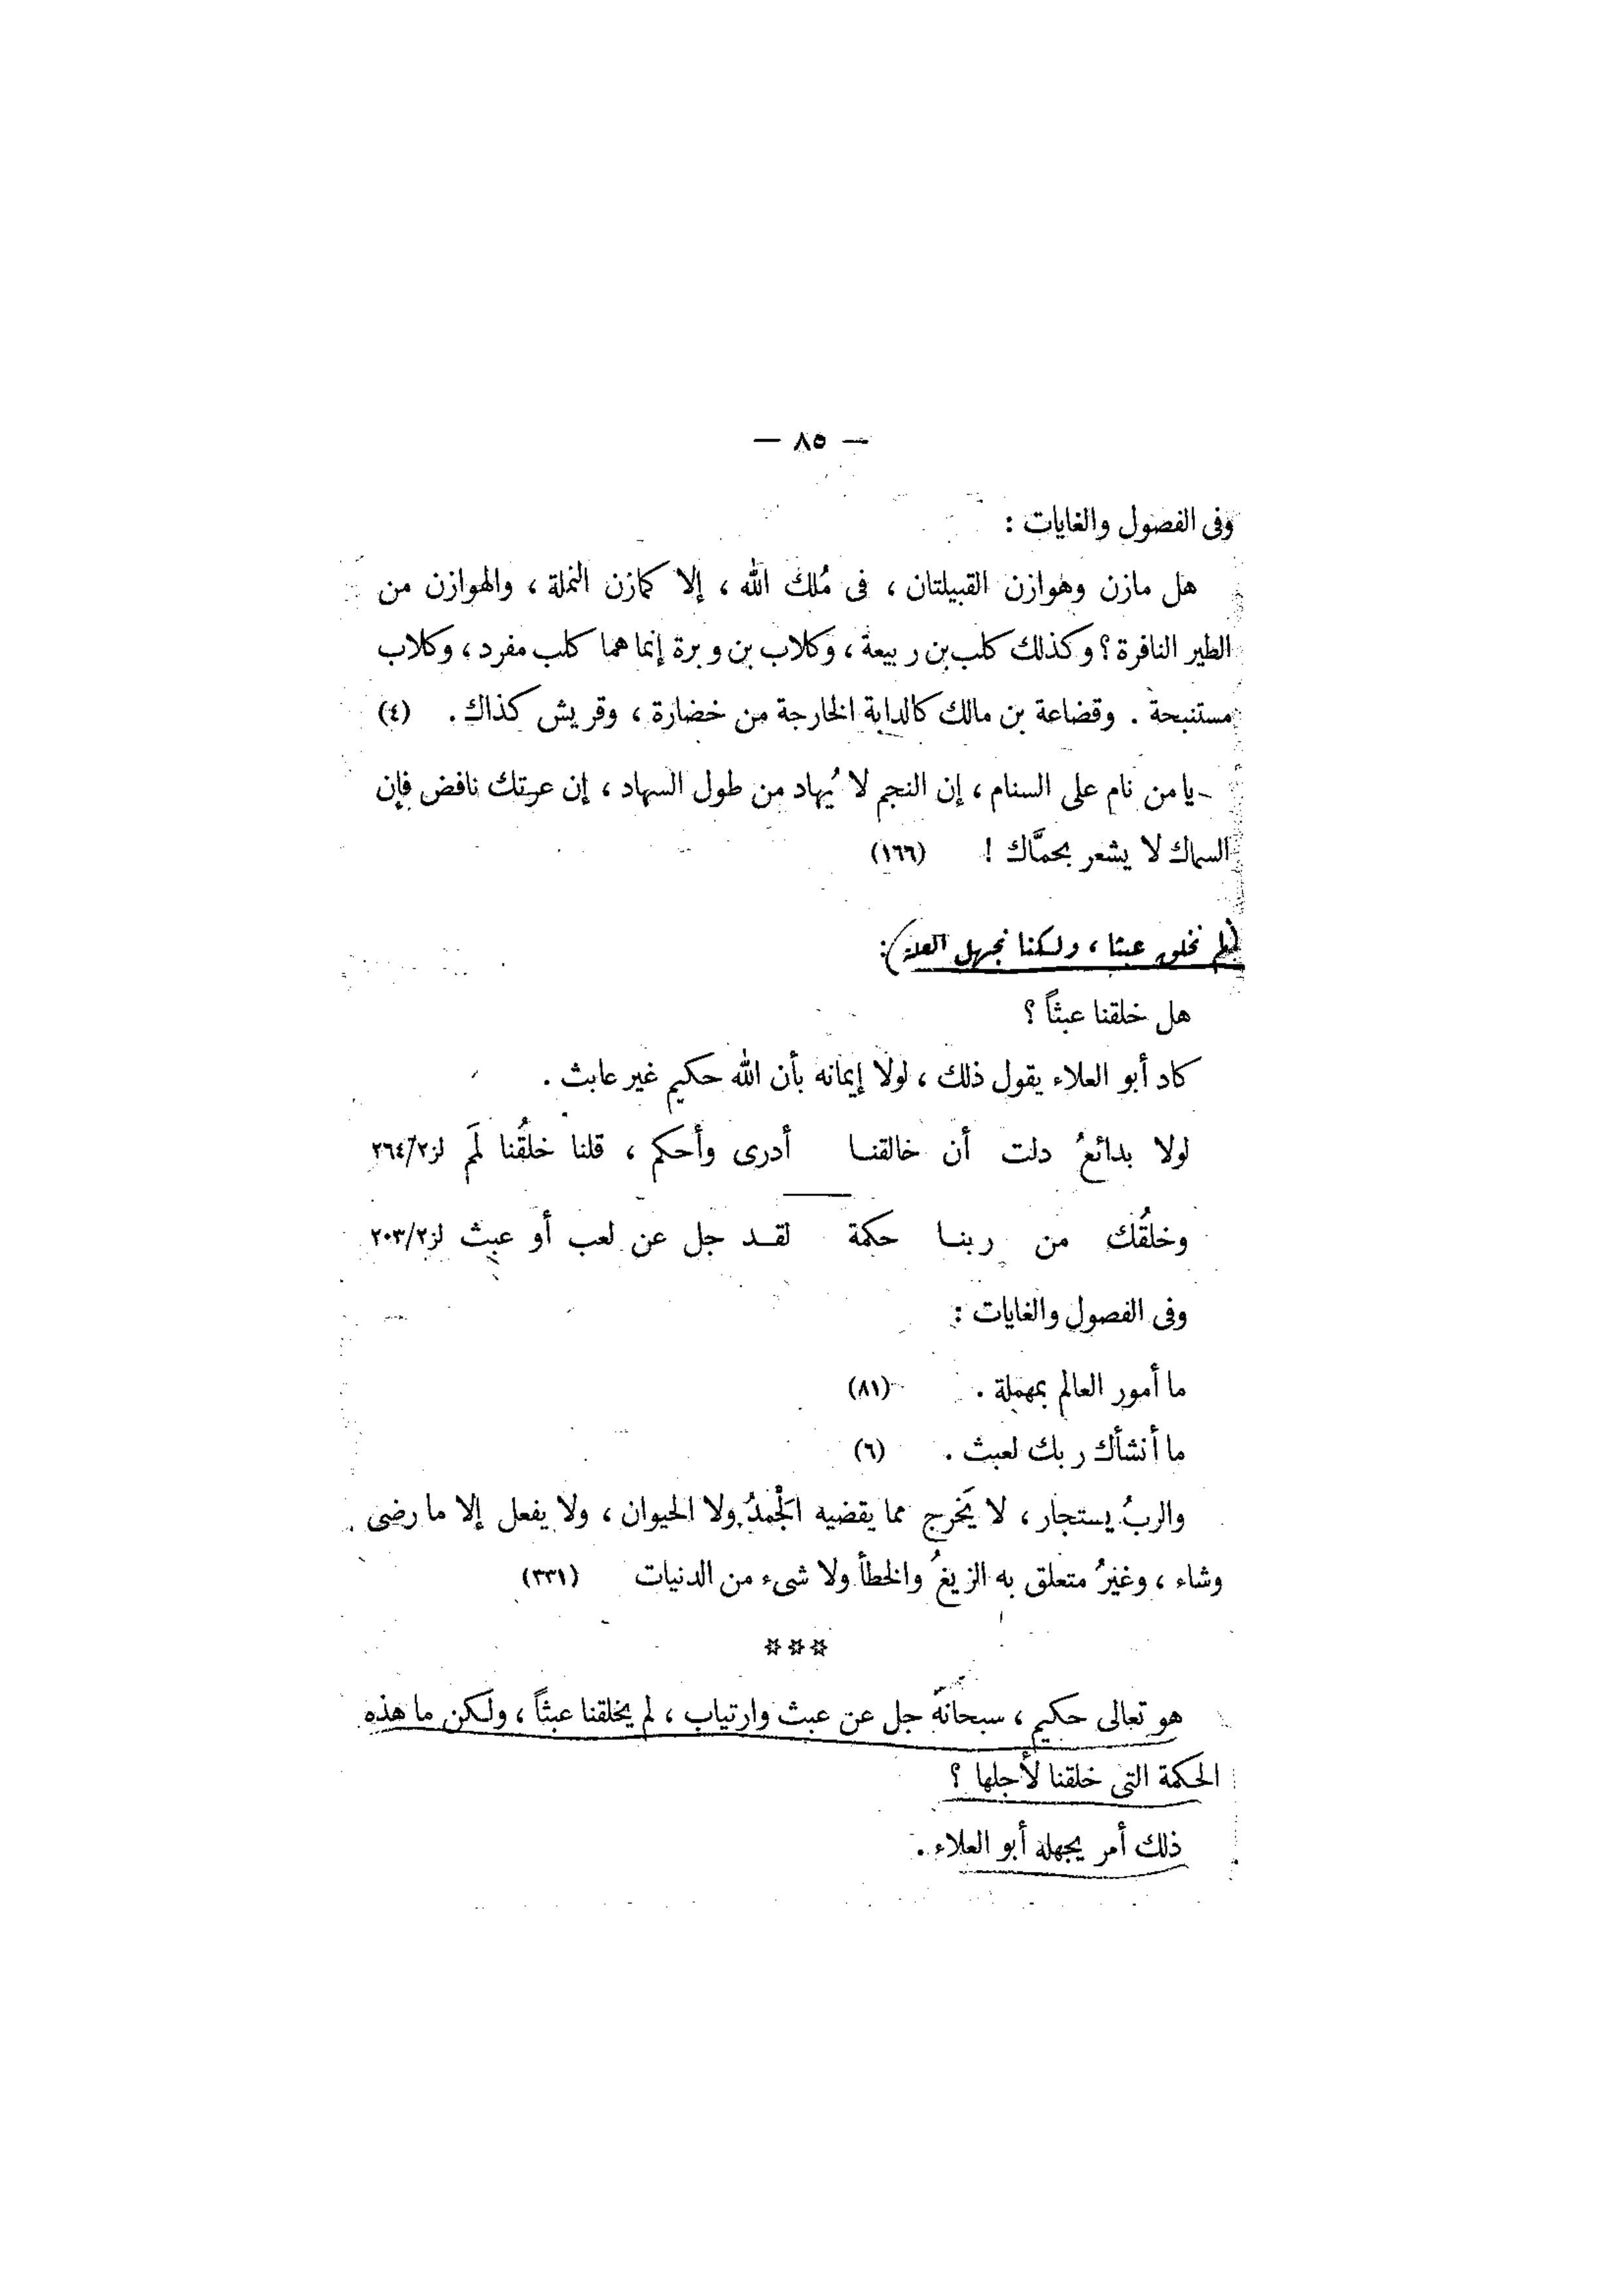 — ٨٥ —
وفى الفصول والغايات :
هل مازن وهوازن القبيلتان ، فى مُلك الله ، إلا كمازن النملة ، والهوازن من
الطير النافرة ؟ وكذلك كلب بن ربيعة ، وكلاب بن وبرة إنما هما كلب مفرد ، وكلاب
مستنبحة . وقضاعة بن مالك كالدابة الخارجة من خضارة ، وقريش كذاك . (٤)
يا من نام على السنام ، إن النجم لا يُهاد من طول السهاد ، إن عرتك نافض فإن
السماك لا يشعر بحمَّاك ! (١٦٦)
(لم نخلق عبثا ، ولكنا نجهل العلة) :
هل خلقنا عبثاً ؟
كاد أبو العلاء يقول ذلك ، لولا إيمانه بأن الله حكيم غير عابث .
لولا بدائعُ دلت أن خالقنا أدرى وأحكم ، قلنا خلقُنا لَمَم لز٢/٢٦٤
وخلقُك من ربنا حكمة لقد جل عن لعب أو عبث لز٢/٢٠٣
وفى الفصول والغايات :
ما أمور العالم بمهملة . (٨١)
ما أنشأك ربك لعبث . (٦)
والربُ يستجار ، لا يَخرج مما يقضيه الجْمدُ ولا الحيوان ، ولا يفعل إلا ما رضى
وشاء ، وغيرُ متعلق به الزيغُ والخطأ ولا شىء من الدنيات (٣٣١)
***
هو تعالى حكيم ، سبحانه جل عن عبث وارتياب ، لم يخلقنا عبثاً ، ولكن ما هذه
الحكمة التى خلقنا لأجلها ؟
ذلك أمر يجهله أبو العلاء .